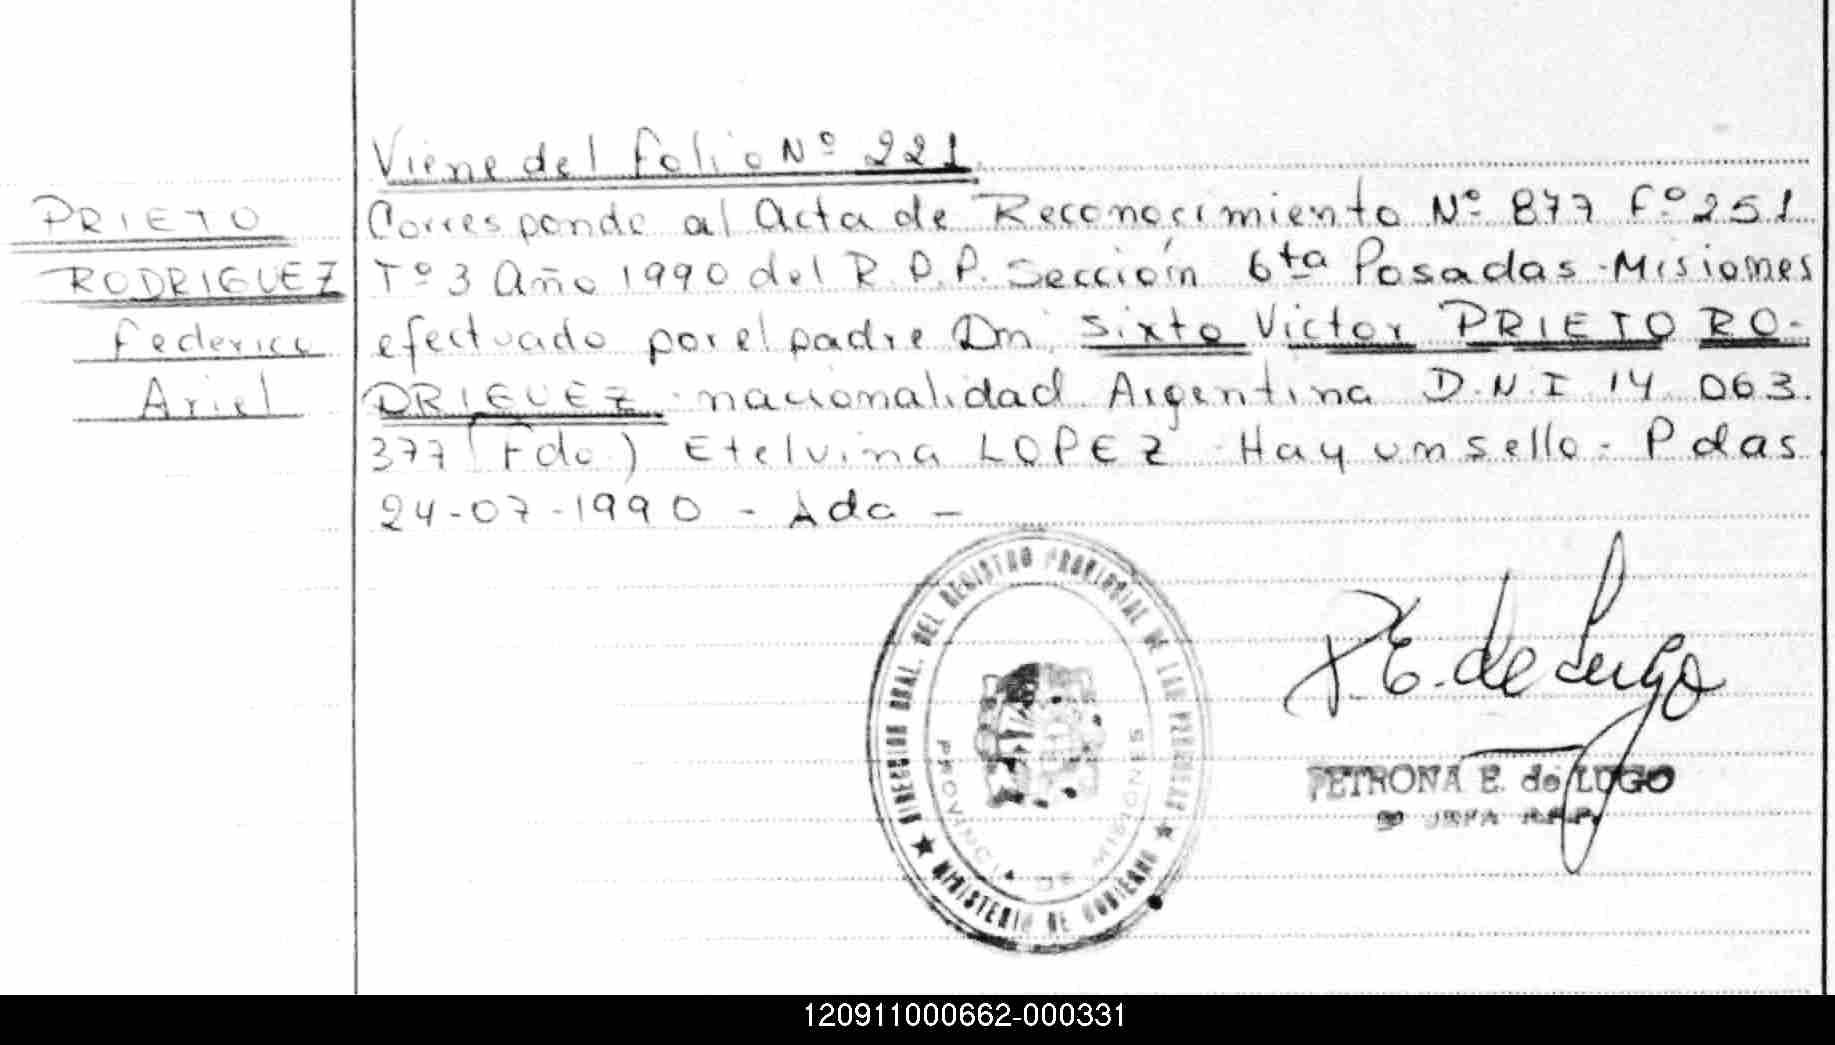 Viene del folio Nº 221
PRIETO
RODRIGUEZ
Federico
Ariel
Corresponde al Acta de Reconocimiento Nº 877 Fº 251
Tº 3 Año 1990 del R.P.P. Sección 6ta Posadas - Misiones
efectuado por el padre Dn. Sixto Victor PRIETO RO-
DRIGUEZ - nacionalidad Argentina D.N.I 14.063.
377 (Fdo) Etelvina LOPEZ - Hay un sello - Pdas
24-07-1990 - Ada -
DIRECCION GRAL. DEL REGISTRO PROVINCIAL DE LAS PERSONAS
PROVINCIA DE MISIONES
MINISTERIO DE GOBIERNO
P.E. de Lugo
PETRONA E. de LUGO
JEFA R.P.P.
120911000662-000331